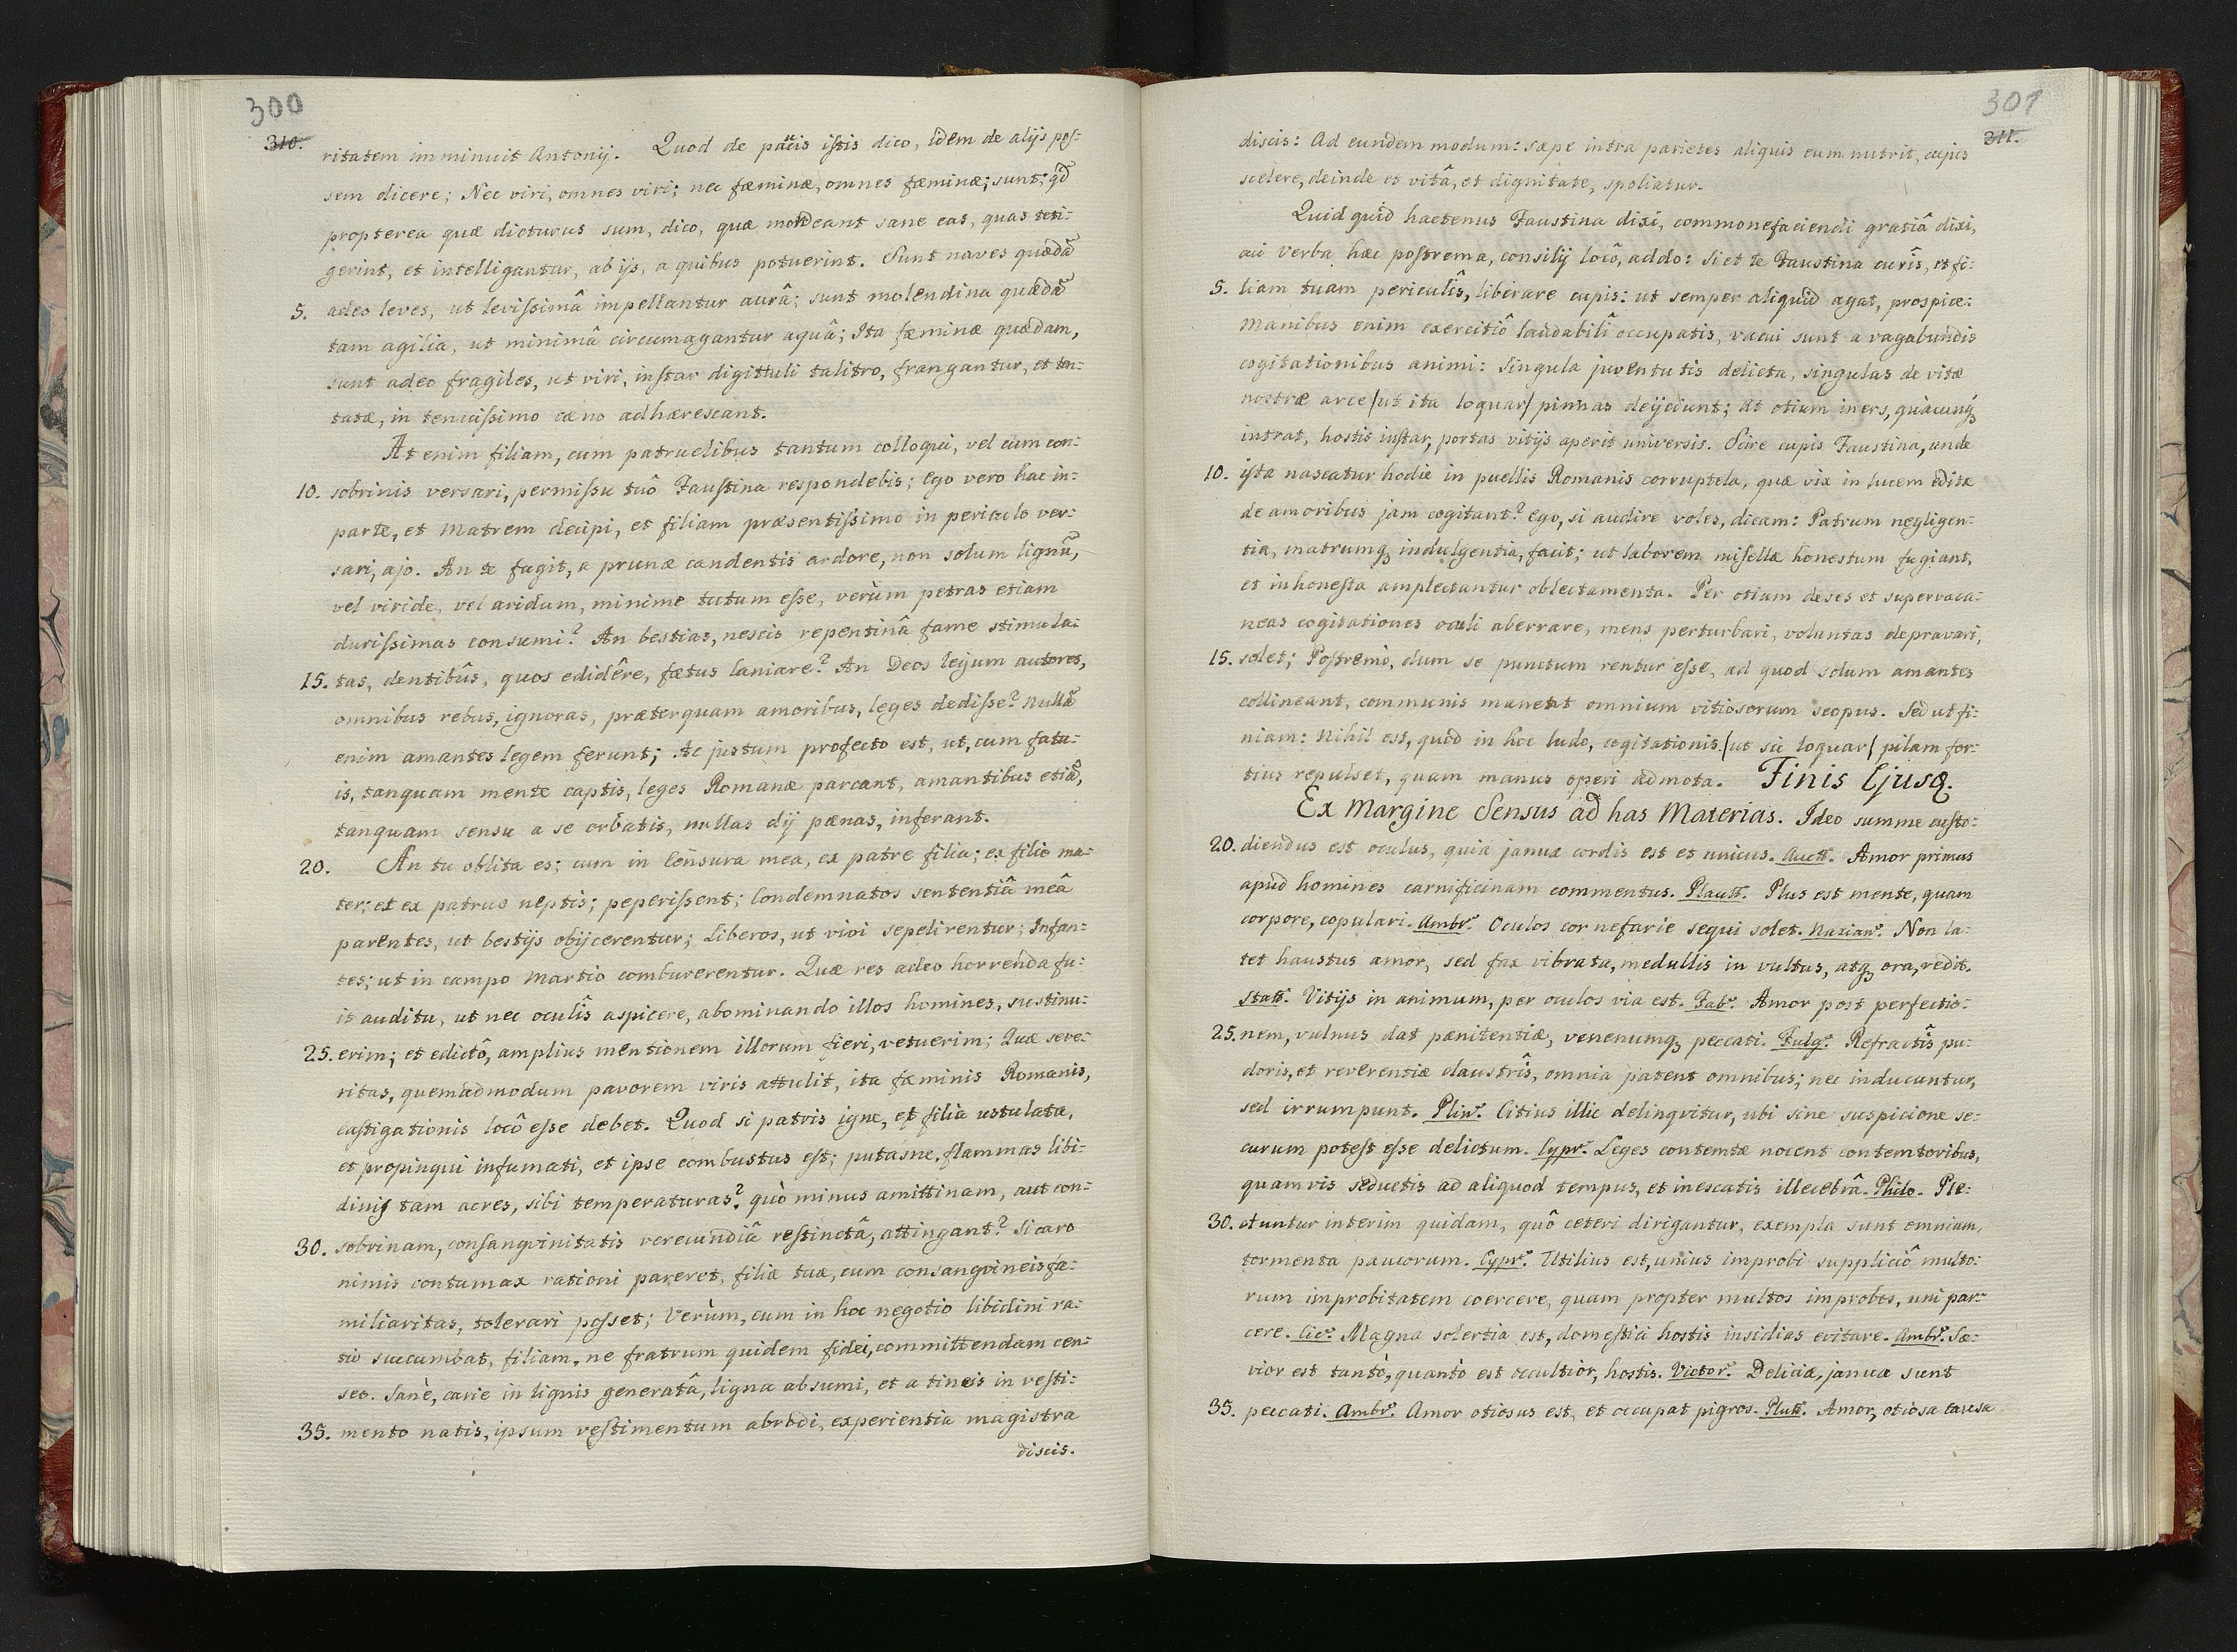 300
310.
ritatem imminuit Antonij. Quod de paucis istis dico, idem de alijs pos-
sem dicere; Nec viri, omnes viri; nec fæminæ, omnes fæminæ; sunt; qd
propterea quæ dicturus sum, dico, quæ mordeant sane eas, quas teti-
gerint, et intelligantur, ab ijs, a quibus potuerint. Sunt naves quædã
5. adeo leves, ut levissimâ impellantur aurâ; sunt molendina quædã
tam agilia, ut minimâ circumagantur aquâ; Ita fæminæ quædam,
sunt adeo fragiles, ut viri, instar digittuli talitro, frangantur, et tan-
tatæ, in tenuissimo cæno adhærescant.
At enim filiam, cum patruelibus tantum colloqui, vel cum con-
10. sobrinis versari, permissu tuô Faustina respondebis; Ego vero hac in-
parte, et Matrem decipi, et filiam præsentissimo in periculo ver-
sari, ajo. An te fugit, a prunæ candentis ardore, non solum lignũ,
vel viride, vel aridum, minime tutum esse, verùm petras etiam
durissimas consumi? An bestias, nescis repentinâ fame stimula-
15. tas, dentibûs, quos edidêre, fætus laniare? An Deos legum autores,
omnibus rebus, ignoras, præterquam amoribus, leges dedisse? Nullã
enim amantes legem ferunt; Ac justum profecto est, ut, cum fatu-
is, tanquam mente captis, leges Romanæ parcant, amantibus etiã,
tanquam sensu a se orbatis, nullas dij pænas, inferant.
20. An tu oblita es; cum in Censura mea, ex patre filia; ex filio ma-
ter; et ex patruo neptis; peperissent; Condemnatos sententiâ meâ
parentes, ut bestijs obijcerentur; Liberos, ut vivi sepelirentur; Infan-
tes; ut in campo Martio comburerentur. Quæ res adeo horrenda fu-
it auditu, ut nec oculîs aspicere, abominando illos homines, sustinu-
25. erim; et edictô, amplius mentionem illorum fieri, vetuerim; Quæ seve-
ritas, quemadmodum pavorem viris attulit, ita fæminis Romanis,
castigationis locô esse debet. Quod si patris igne, et filia ustulata,
et propinqui infumati, et ipse combustus est; putasne, flammas libi-
dinis tam acres, sibi temperaturas? quò minus amittinam, aut con-
30. sobrinam, consanqvinitatis verecundiâ restinctâ, attingant? Si caro
nimis contumax rationi pareret, filiæ tuæ, cum consanqvineis fa-
miliaritas, tolerari posset; Verùm, cum in hoc negotio libidini ra-
tio succumbat, filiam, ne fratrum quidem fidei, committendam cen-
seo. Sanè, carie in lignis generatâ, ligna absumi, et a tineis in vesti-
35. mento natis, ipsum vestimentum abrodi, experientia magistra
discis.
301
311.
discis: Ad eundem modum: sæpe intra parietes aliquis eum nutrit, cujus
scelere, deinde et vitâ, et dignitate, spoliatur.
Quid quid hactenus Faustina dixi, commonefaciendi gratiâ dixi,
aci verba hæc postrema, consilij locô, addo: si et te Faustina curîs, et fi-
5. liam tuam periculîs, liberare cupis: ut semper aliquid agat, prospice:
Manibus enim exercitiô laudabilî occupatis, vacui sunt a vagabundis
cogitationibus animi: Singula juventutis delicta, singulas de vitæ
nostræ arce /ut ita loquar/ pinnas deijciunt; At otium iners, quacunq
intrat, hostis instar, portas vitijs aperit universis. Scire cupis Faustina, unde
10. ista nascatur hodie in puellis Romanis corruptela, quæ vix in lucem editæ
de amoribus jam cogitant? Ego, si audire voles, dicam: Patrum negligen-
tia, matrumq indulgentia, facit; ut laborem misellæ honestum fugiant,
et inhonesta amplectantur oblectamenta. Per otium deses et supervaca-
neas cogitationes oculi aberrare, mens perturbari, voluntas depravari,
15. solet; Postremò, dum se punctum rentur esse, ad quod solum amantes
collineant, communis manent omnium vitiosorum scopus. Sed ut fi-
niam: Nihil est, quod in hoc ludo, cogitationis /ut sic loquar/ pilam for-
tius repulset, quam manus operi admota. Finis Ejusq.
Ex Margine Sensus ad has Materias. Ideo summe custo-
20. diendus est oculus, quia janua cordis est et unicus. Auctt. Amor primus
apud homines carnificinam commentus. Plautt. Plus est mente, quam
corpore, copulari. Ambr. Oculos cor nefarie sequi solet. Nazian. Non la-
tet haustus amor, sed fax vibrata, medullis in vultus, atq ora, redit.
Statt. Vitijs in animum, per oculos via est. Fab. Amor post perfectio-
25. nem, vulnus dat pænitentiæ, venenumq peccati. Fulg. Refractîs pu-
doris, et reverentiæ claustrîs, omnia patent omnibus; nec inducuntur,
sed irrumpunt. Plin. Citius illic delinqvitur, ubi sine suspicione se-
curum potest esse delictum. Cypr. Leges contemtæ nocent contemtoribus,
quamvis seductis ad aliquod tempus, et inescatis illecebrâ. Philo. Ple-
30. ctuntur interim quidam, quô ceteri dirigantur, exempla sunt omnium,
tormenta paucorum. Cypr. Utilius est, unius improbi suppliciô multo-
rum improbitatem coercere, quam propter multos improbos, uni par-
cere. Cic. Magna solertia est, domestici hostis insidias evitare. Ambr. Sæ-
vior est tantò, quantò est occultior, hostis. Victor. Deliciæ, janua sunt
35. peccati. Ambr. Amor otiosus est, et occupat pigros. Plutt. Amor, otiosa causa